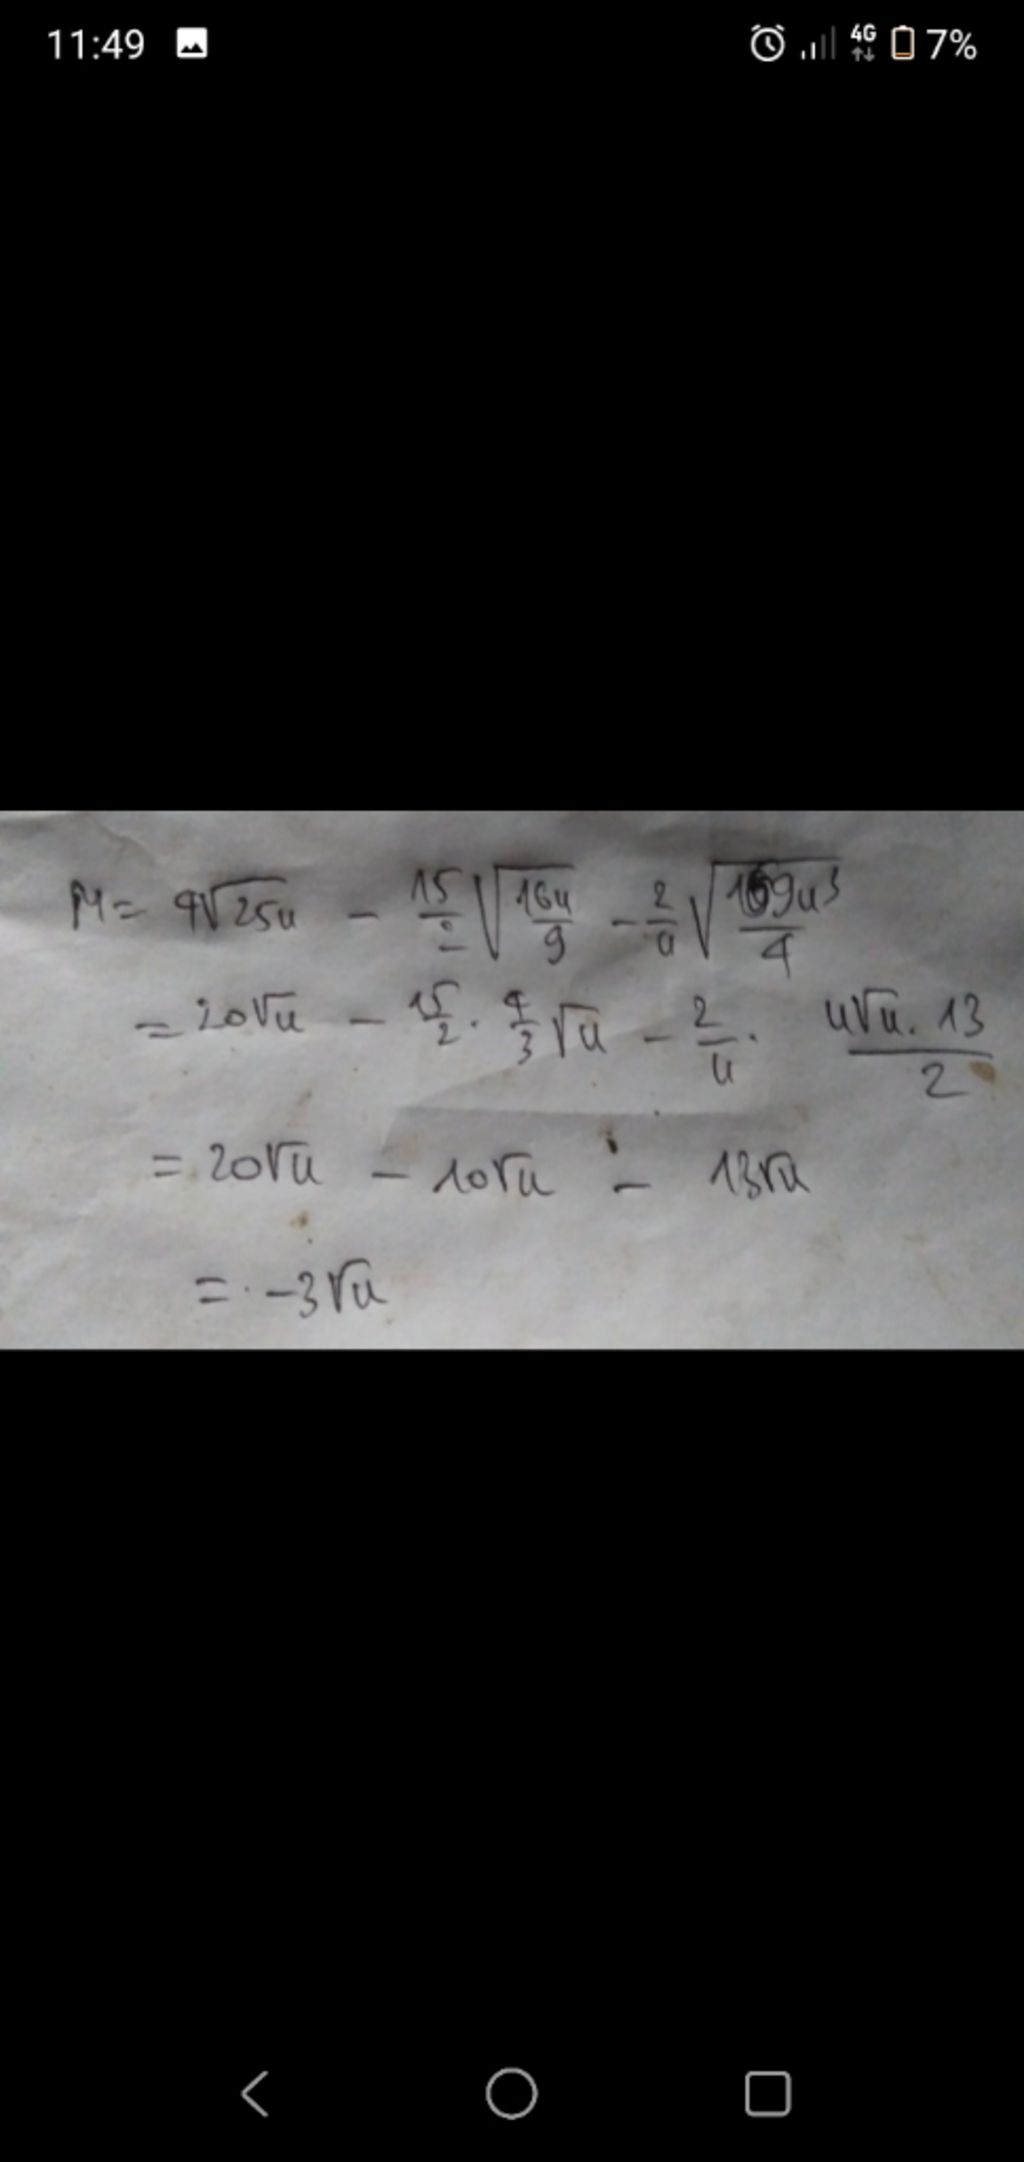 11:49 4G 7%
M = 4√25u - 15/2 √16u/9 - 2/u √169u³/4
= 20√u - 15/2 . 4/3 √u - 2/u . u√u. 13/2
= 20√u - 10√u - 13√u
= -3√u